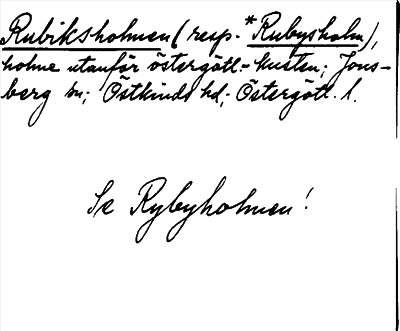 Rubiksholmen (resp. *Rubysholm),
holme utanför östergötl.-kusten; Jons-
berg sn; Östkinds hd; Östergötl. l.
Se Rybyholmen!